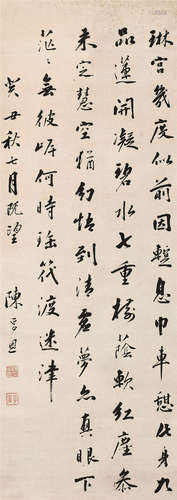 琳宮幾度似前因暫息巾車憩此身九
品蓮開凝碧水七重樹蔭軟紅塵參
來定慧空猶幻悟到清虛夢亦真眼下
茫〻無彼岸何時瑤筏渡迷津
癸丑秋七月既望 陳孚恩